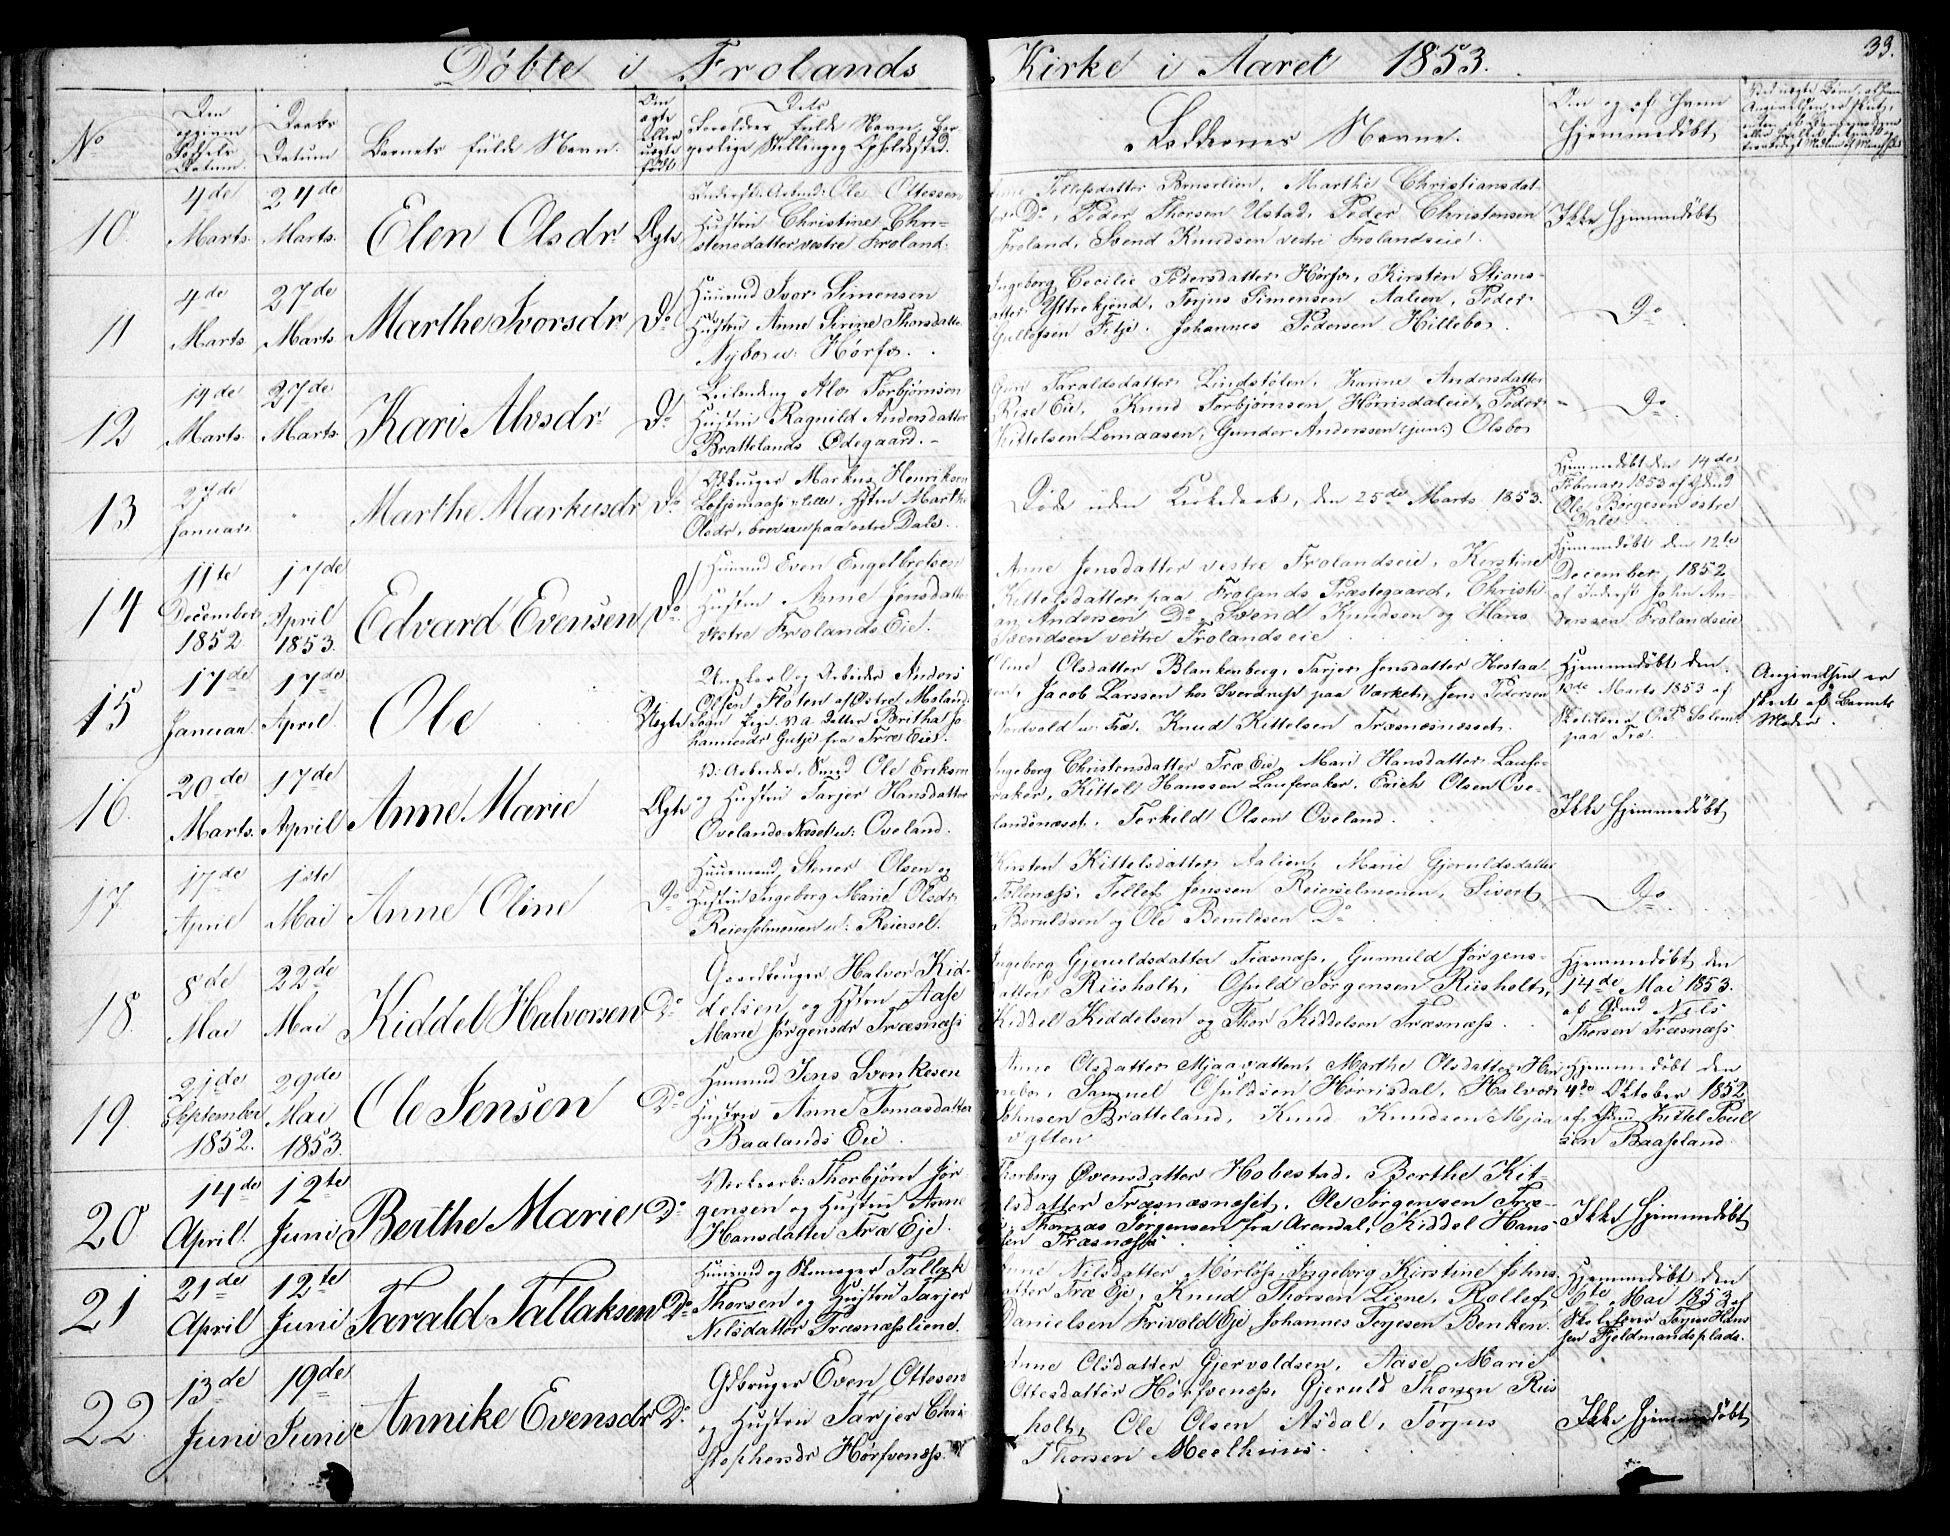 Döbte i Frolands Kirke i Aaret 1853. 33.
No
Den opgivne Fødsels Datum.
Daabs Datum
Barnets fulde Navn.
Om ægte eller uægte født
Dets Forældres fulde Navn, Borgerlige Stilling og Opholdssted.
Faddernes Navne.
Om og af hvem Hjemmedøbt
10.
4de Marts.
24de Marts.
Elen Olsdr
Ægte
Ole Ottessen
Hustru Christine Chri-
stensdatter, vestre Froland.
Tellefsdatter Bruselien, Marthe Christiansdat-
Do, Peder Thorsen Ustad, Peder Christensen
Froland, Svend Knudsen vestre Frolandseie.
Ikke Hjemmedøbt
11
4de Marts
27de Marts
Marthe Ivorsdr
Do
Huusmd Ivor Simensen
Hustru Anne Serine Thorsdatter
Nyboe u: Hørfos.
Ingeborg Cecilie Pedersdatter Hørfos, Kirsten Stians-
atter Yttrekjend, Terjus Simensen Aalien, Peder
Gullefsen Fitje. Johannes Pedersen Hillebo.
Do
12
14de Marts.
27de Marts.
Kari Alvsdr
Do
Leilending Alv Torbjørnsen
Hustru Ragnild Andersdatter
Brattelands Ødegaard.
Guri Taraldsdatter Lindstølen, Karine Andersdatter
Rise Eie, Knud Torbjørnsen Hørrisdaleiet, Peder
Kittelsen Lomaasen, Gunder Anderssen (jun:) Olsbo
Do
13
27de Januari
Marthe Markusdr
Do
Gdbruger Markus Henriksen
Hstru Marthe
Olsdr, paa østre Dale.
Døde uden Kirkedaab, den 25de Marts 1853.
Hjemmedøbt den 14de
Februari 1853 af Gdmd
Ole Børgesen østre
Dale
14
11te December 1852
17de April 1853.
Edvard Evensen
Do
Huusmd Even Engelbretsen
Hustru Anne Jensdatter
vestre Frolands Eie.
Anne Jensdatter vestre Frolandseie, Kirstine
Kittelsdatter paa Frolands Præstegaard, Christi
an Andersen Do, Svend Knudsen og Hans
Svendsen vestre Frolandseie
Hjemmedøbt den 12te
December 1852
af Inderst John An-
derssen Frolandseie
15
17de Januari
17de April
Ole
Uægte
Ungkarl og Arbeider Anders
Olsen Floten af Østre Moland
Sogn Pige Britha Jo-
hannesdr fra Træ Eie.
Oline Olsdatter Blankenberg, Tarjer Jensdatter Hestaa-
sen, Jacob Larssen hos Sverdrups paa Værket, Jens Pedersen
Nordvold u: Træ, Knud Kittelsen Træsnæsnæsset.
Hjemmedøbt den
Marts 1853 af
Skoleholder O. P. Solem
paa Træ.
Angivelsen er
skeet af Barnets
Moder.
16.
20de Marts.
17de April
Anne Marie
Ægte
V: Arbeider, Smed Ole Eriksen
og Hustru Tarjer Hansdatter
Ovelands Næset u: Oveland.
Ingeborg Christensdatter Træ Eie, Mari Hansdatter Laufe-
raker, Kittel Hanssen Lauferaker, Erich Olsen Ove-
landsnæset, Terkild Olsen Oveland.
Ikke Hjemmedøbt
17
17de April
1ste Mai
Anne Oline
Do
Huusmand Stener Olsen og
Hustru Ingeborg Marie Olsdr
Reierselmonen u: Reiersel.
Kirsten Kittelsdatter Aalien, Marie Gjeruldsdatter
Tellef Jenssen Reierselmonen, Sivert
Beruldsen og Ole Beruldsen Do
Do
18.
8de Mai
22de Mai
Kiddel Halvorsen
Do
Gaardbruger Halvor Kid-
delsen og Hstru Aase
Marie Jørgensdr Træsnæss
Ingeborg Gjeruldsdatter Træsnæss, Gunnild Jørgens-
datter Riisholt, Osuld Jørgensen Riisholt,
Kiddel Kiddelsen og Thor Kiddelsen Træsnæss.
Hjemmedøbt den
14de Mai 1853.
af Gdmd Nils
Thorsen Træsnæss
19.
21de September 1852.
29de Mai 1853.
Ole Jensen
Do
Huusmd Jens Svenkesen
Hustru Anne Tomasdatter
Baalands Eie.
Anne Olsdatter Mjaavatten, Marthe Olsdatter Hei
nebo, Samuel Osuldsen Hørrisdal, Halvor
Johnsen Bratteland, Knud Knudsen Mjaa
vatten
Hjemmedøbt den
4de Oktober 1852
af Gdmd Kittel Poul
sen Baaseland.
20
14de April.
12te Juni
Berthe Marie
Do
Værksarb: Thorbjørn Jør-
gensen og Hustru Anne
Hansdatter Træ Eje.
Thorborg Øvensdatter Hobestad, Berthe Kit-
elsdatter Træsnæsnæset, Ole Jørgensen Træ-
Thomas Jørgensen fra Arendal, Kiddel Hans-
sen Træsnæss.
Ikke Hjemmedøbt
21
21de April
12te Juni
Tarald Tallaksen
Do
Huusmd og Skomager Tallak
Thorsen og Hustru Tarjer
Nilsdatter Træsnæssliene.
Nilsdatter Mørløs, Ingeborg Kirstine Johns
datter Træ Eje, Knud Thorsen Liene, Rollef
Danielsen Frivold Eje, Johannes Terjesen Benken.
Hjemmedøbt den
Mai 1853 af
Skolelærer Terjus Hans
sen Fjeldmandsplads.
22.
13de Juni
19de Juni
Annike Evensdr
Do
Gdbruger Even Ottesen
og Hustru Tarjer Chri-
stophersdr Hørfvenæss.
Anne Olsdatter Gjervoldsen, Aase Marie
Ottesdatter Hørfvenæss, Gjeruld Thorsen Riis
holt, Ole Olsen Asdal, Tørjus
Thorsen Meelhuus.
Ikke Hjemmedøbt